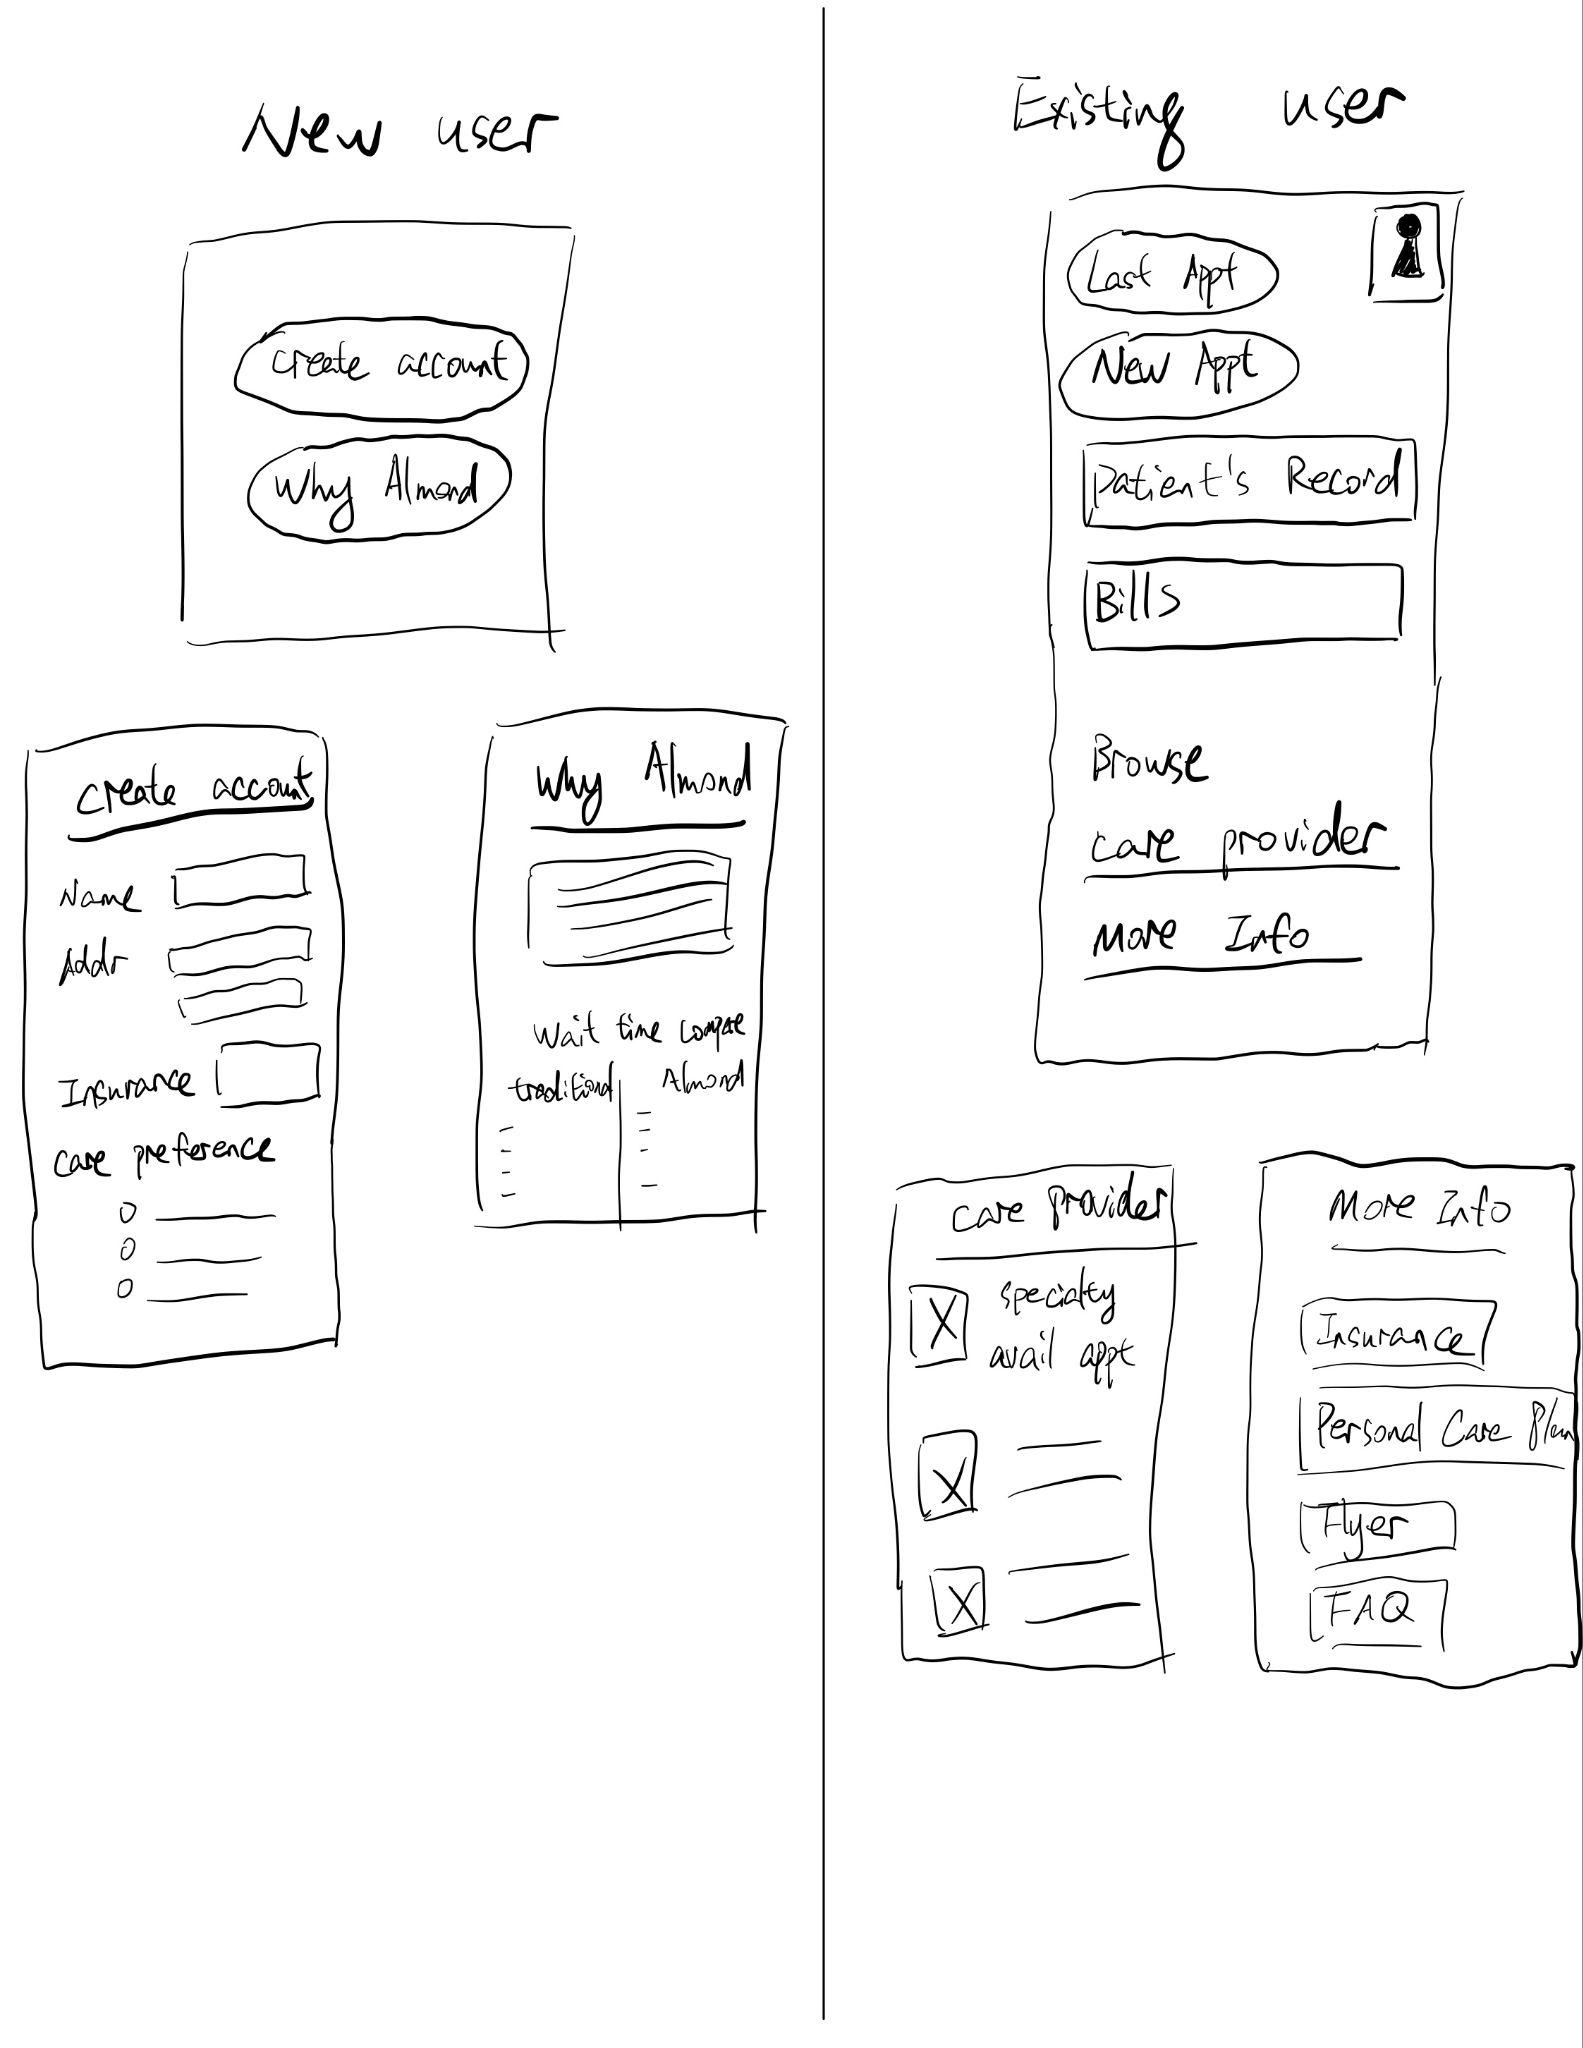 New user
create account
Why Almond
create account
Name
Addr
Insurance
care preference
Why Almond
Wait time compare
traditional
Almond
Existing user
Last Appt
New Appt
Patient's Record
Bills
Browse
care provider
More Info
care provider
specialty
avail appt
More Info
Insurance
Personal Care Plan
Flyer
FAQ